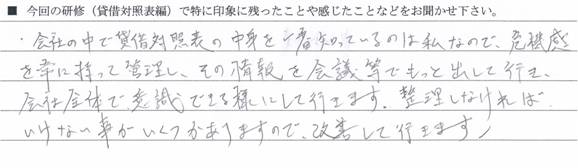 ■ 今回の研修（貸借対照表編）で特に印象に残ったことや感じたことなどをお聞かせ下さい。
・会社の中で貸借対照表の中身を一番知っているのは私なので、危機感
を常に持って管理し、その情報を会議等でもっと出して行き、
会社全体で意識できる様にして行きます。整理しなければ
いけない事がいくつかありますので、改善して行きます